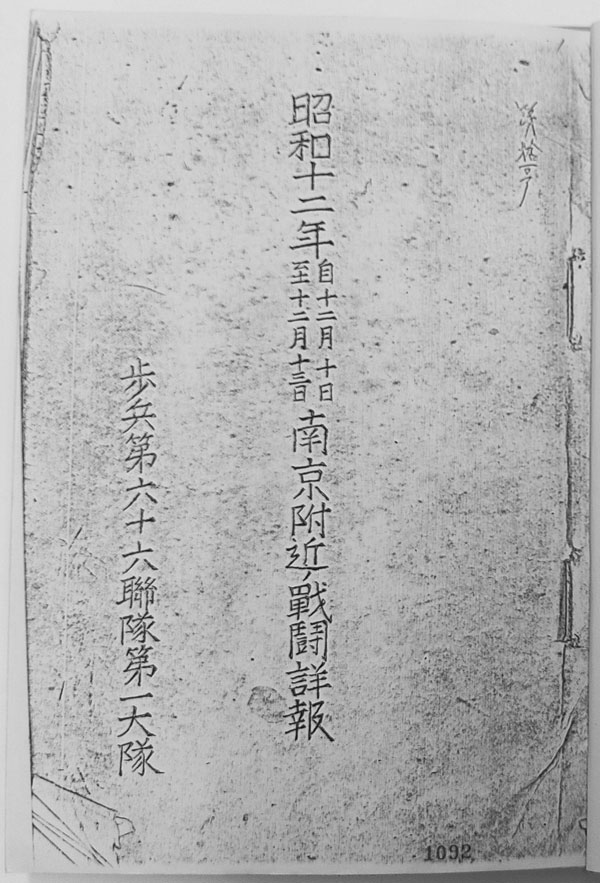 昭和十二年自十二月十日至十二月十三日南京附近ノ戰鬪詳報
歩兵第六十六聯隊第一大隊
1092